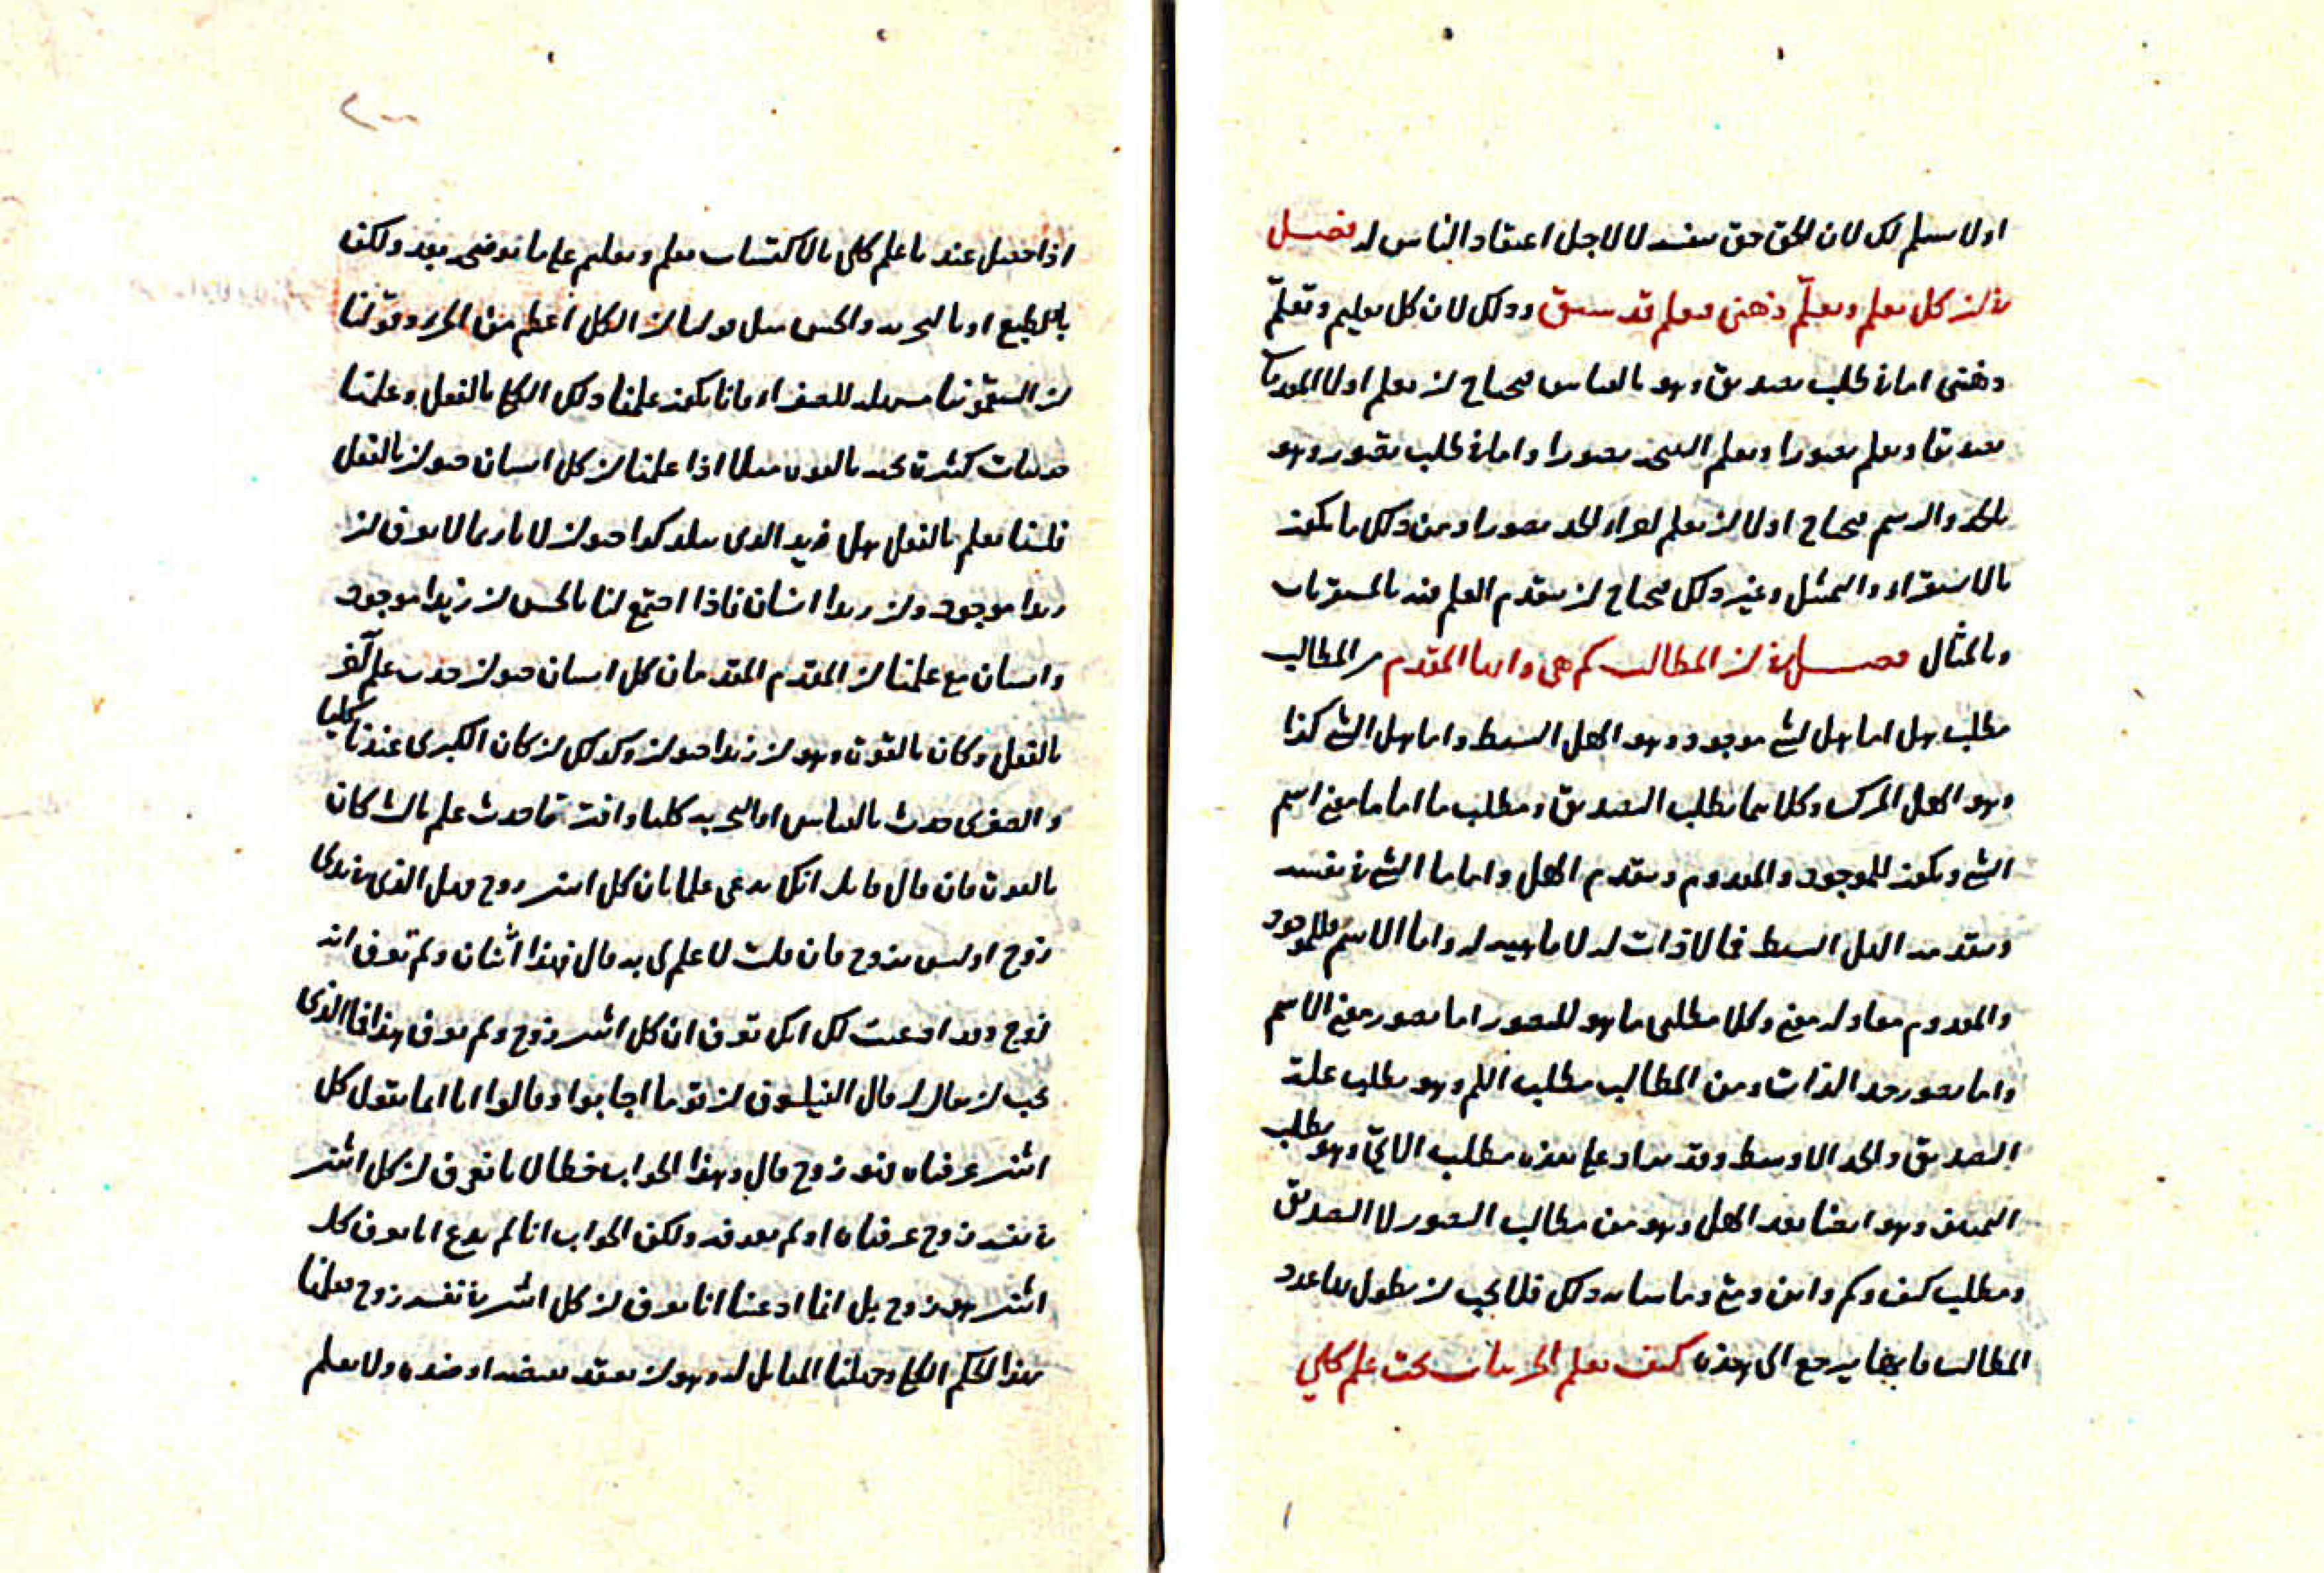 اولا يسلم لك لان الحق حق بنفسه لا لاجل اعتقاد الناس له فصل
في ان كل تعليم وتعلّم ذهني فبعلم قد سبق وذلك لان كل تعليم وتعلّم
ذهني اما في طلب تصديق وهو بالقياس فيحتاج ان يعلم اولا المقدمات
تصديقا ويعلم تصورا ويعلم النتيجة تصورا واما في طلب تصور وهو
بالحد والرسم فيحتاج اولا ان يعلم اجزاء الحد تصورا ومن ذلك ما يكون
بالاستقراء والتمثيل وغير ذلك فيحتاج ان يتقدم العلم فيه بالمستقريات
وبالمثال فصل في ان المطالب كم هي وايها المقدم من المطالب
مطلب هل اما هل الشئ موجود وهو الهل البسيط واما هل الشئ كذا
وهو الهل المركب وكلاهما يطلب التصديق ومطلب ما اما ما معنى اسم
الشئ ويكون للموجود والمعدوم ويتقدم الهل واما ما الشئ في نفسه
ويتقدمه الهل البسيط فما لا ذات له لا ماهية له واما الاسم فللموجود
والمعدوم معا وله معنى وكلا مطلبي ما هو للتصور اما تصور معنى الاسم
واما تصور حد الذات ومن المطالب مطلب اللم وهو يطلب علة
التصديق والحد الاوسط وقد يزاد على هذه مطلب الاىّ وهو يطلب
التمييز وهو ايضا بعد الهل وهو من مطالب التصور لا التصديق
ومطلب كيف وكم واين ومتى وما شابه ذلك فلا يجب ان يطول بها عدد
المطالب فانها يرجع الى هذه كيف تعلم الجزئيات تحت علم كلي
اذا حصل عندنا علم كلي بالاكتساب بعلم وتعليم على ما نوضحه بعد ولكن
بالطبع او بالتجربة والحس مثل قولنا ان الكل اعظم من الجزء وقولنا
ان السقمونيا مسهلة للصفراء فانا يكون علمنا ذلك الكلي بالفعل وعلمنا
جزئيات كثيرة تحته بالقوة مثلا اذا علمنا ان كل انسان حيوان بالفعل
فلسنا نعلم بالفعل هل زيد الذي ببلد كذا حيوان لانا ربما لا نعرف ان
زيدا موجود وان زيدا انسان فاذا اجتمع لنا بالحس ان زيدا موجود
وانسان مع علمنا ان المقدم المقدم بان كل انسان حيوان حدث علم آخر
بالفعل وكان بالقوة وهو ان زيدا حيوان وكذلك ان كان الكبرى عندنا كليا
والصغرى حدث بالقياس او التجربة كليا واقترنا حدث علم ثالث كان
بالقوة فان قال قائل انك تدعى علما بان كل اثنين زوج فهل الذي في يدي
زوج او ليس بزوج فان قلت لا علم لي به قال فهذا اثنان ولم تعرف انه
زوج وقد ادعيت لك انك تعرف ان كل اثنين زوج ولم تعرف هذا فما الذي
يجب ان يقال له قال الفيلسوف ان قوما اجابوا وقالوا انا انما نقول كل
اثنين عرفناه فهو زوج قال وهذا الجواب خطا لانا نعرف ان كل اثنين
في نفسه زوج عرفناه او لم نعرفه ولكن الجواب انا لم ندع انا نعرف كل
اثنين هو زوج بل انما ادعينا انا نعرف ان كل اثنين في نفسه زوج فعلمنا
هذا الحكم الكلي وجهلنا المقابل له وهو ان نعتقد نقيضه او ضده ولا نعلم